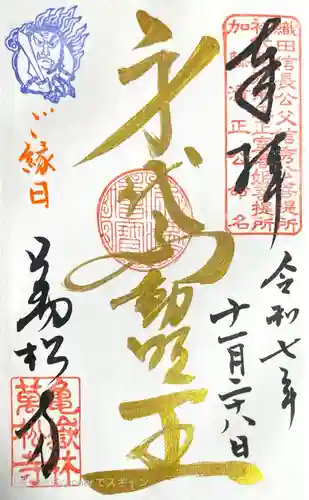 奉拝
織田信長公父信秀公菩提所
加藤清正公命名
令和七年
十一月二十八日
身代不動明王
ご縁日
萬松寺
亀嶽林
萬松寺
でスキャン